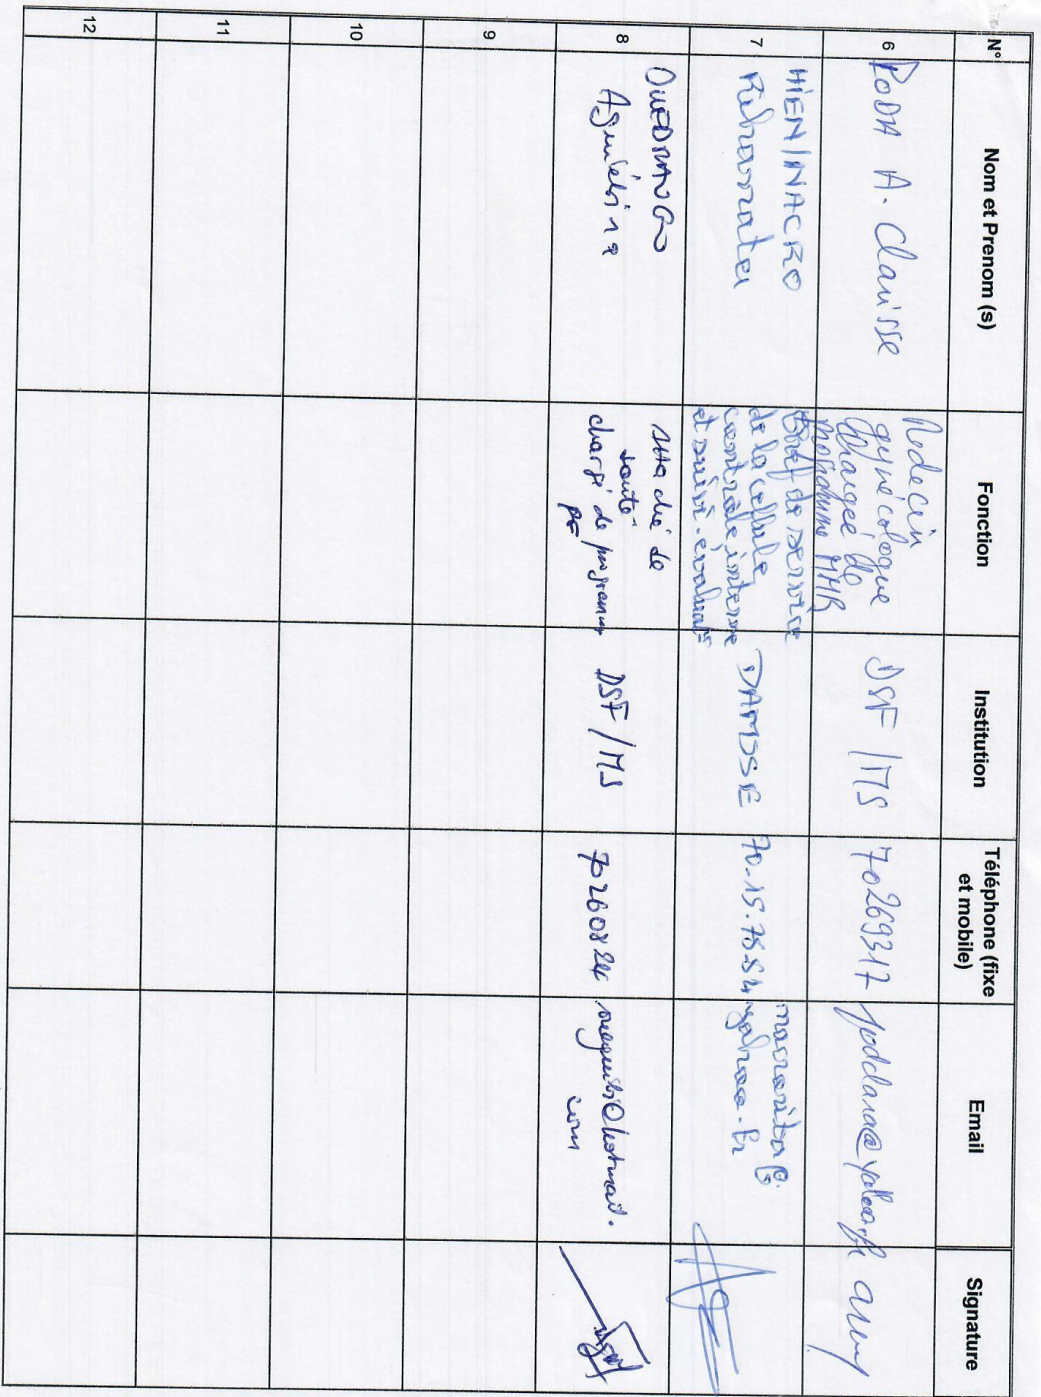 N° Nom et Prenom (s) Fonction Institution Téléphone (fixe et mobile) Email Signature
6 PODA A. Clarisse Medecin gynécologue chargée de programme MMR DSF/MS 70269317 poddara@yahoo.fr
7 HIEN/NACRO Rihanata Chef de service de la cellule contrôle interne et suivi-evaluat° DAMSSE 70.15.75.54 yahoo.fr
8 OUEDRAOGO Attaché de santé chargé de programme PF DSF/MS 70260824 @hotmail.com
9
10
11
12